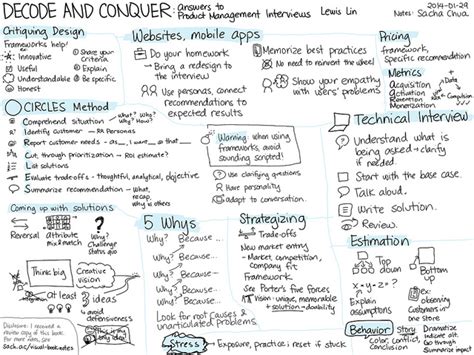 DECODE AND CONQUER:
Answers to
Product Management Interviews
Lewis Lin
2014-01-29
Notes: Sacha Chua
Critiquing Design
Frameworks help!
Innovative
Useful
Understandable
Honest
Share your criteria
Explain
Be specific
Websites, mobile apps
Do your homework
Bring a wireframe to redesign
Use personas, connect recommendations to expected results
Memorize best practices
No need to reinvent the wheel!
Show your empathy with users' problems!
Pricing
framework: specific, formulas
Metrics
Acquisition
Activation
Retention
Monetization
CIRCLES Method
Why? Why?
Why? How?
Comprehend situation
Identify customer
Personas
Report customer needs - As a___, I want___ so that___
Cut through prioritization - ROI estimate?
List solutions
Evaluate tradeoffs - thoughtful, analytical, objective
Summarize recommendation
Warning: when using frameworks, avoid sounding scripted!
Use clarifying questions
Have personality
adapt to conversation.
Technical Interview
Understand what is being asked → clarify if needed.
Start with the base case.
Talk aloud.
Write solution.
Review.
Coming up with solutions
Reversal
Attribute mix & match
Why?
Challenge status quo
Think big
Creative vision
At least 3 ideas
avoid defensiveness
This is my only idea!
Disclosure: I received a review copy of this book.
For more notes, see
sach.ac/visual-book-notes
5 Whys
Why? Because...
Why? Because...
Why? Because...
Why? Because...
Why? Because...
Look for root causes & unarticulated problems
Strategizing
Trade-offs
New market entry
- Market, competition, company fit
Framework
See Porter's five forces
Vision: unique, memorable
solution - durability
Stress
Exposure, practice; reset if stuck
Estimation
Top down
Bottom up
x-y-z=?
Explain first
Estimate
Customers in one store
Behavior
Story
Conflict, Conclusion
Dramatize
indicate alt.
Go through